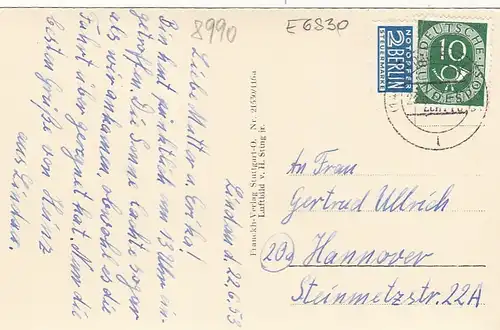 8990
E6830
Lindau d. 22.6.53
Liebe Mutter u. Erika!
Bin heut pünktlich um 13 Uhr ein-
getroffen. Die Sonne lachte sogar
als wir ankamen, obwohl es die
Fahrt über geregnet hat. Nun die
besten Grüße von Heinz
aus Lindau.
Franckh-Verlag Stuttgart-O. Nr. 2155o/116a
Luftbild v. H. Sting jr.
NOTOPFER
2 BERLIN
STEUERMARKE
DEUTSCHE BUNDESPOST
10
An Frau
Gertrud Ullrich
20a Hannover
Steinmetzstr. 22A